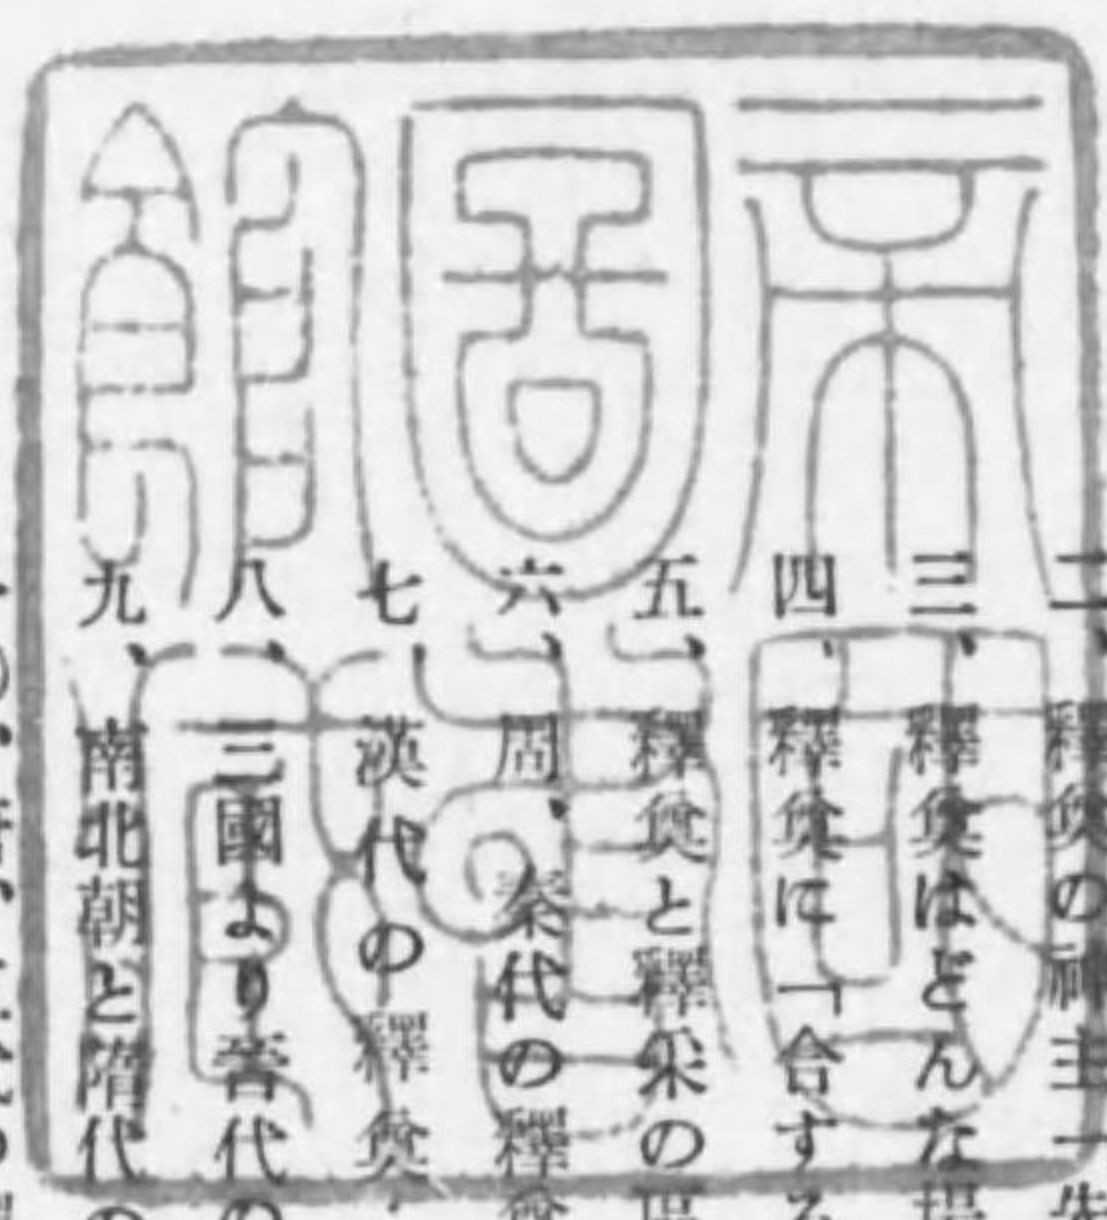 帝國
圖書
館藏
二、釋奠の神主
三、釋奠はどんな
四、釋奠に「合する
五、釋奠と釋采の
六、周、秦代の釋奠
七、漢代の釋奠
八、三國より晉代の
九、南北朝と隋代の